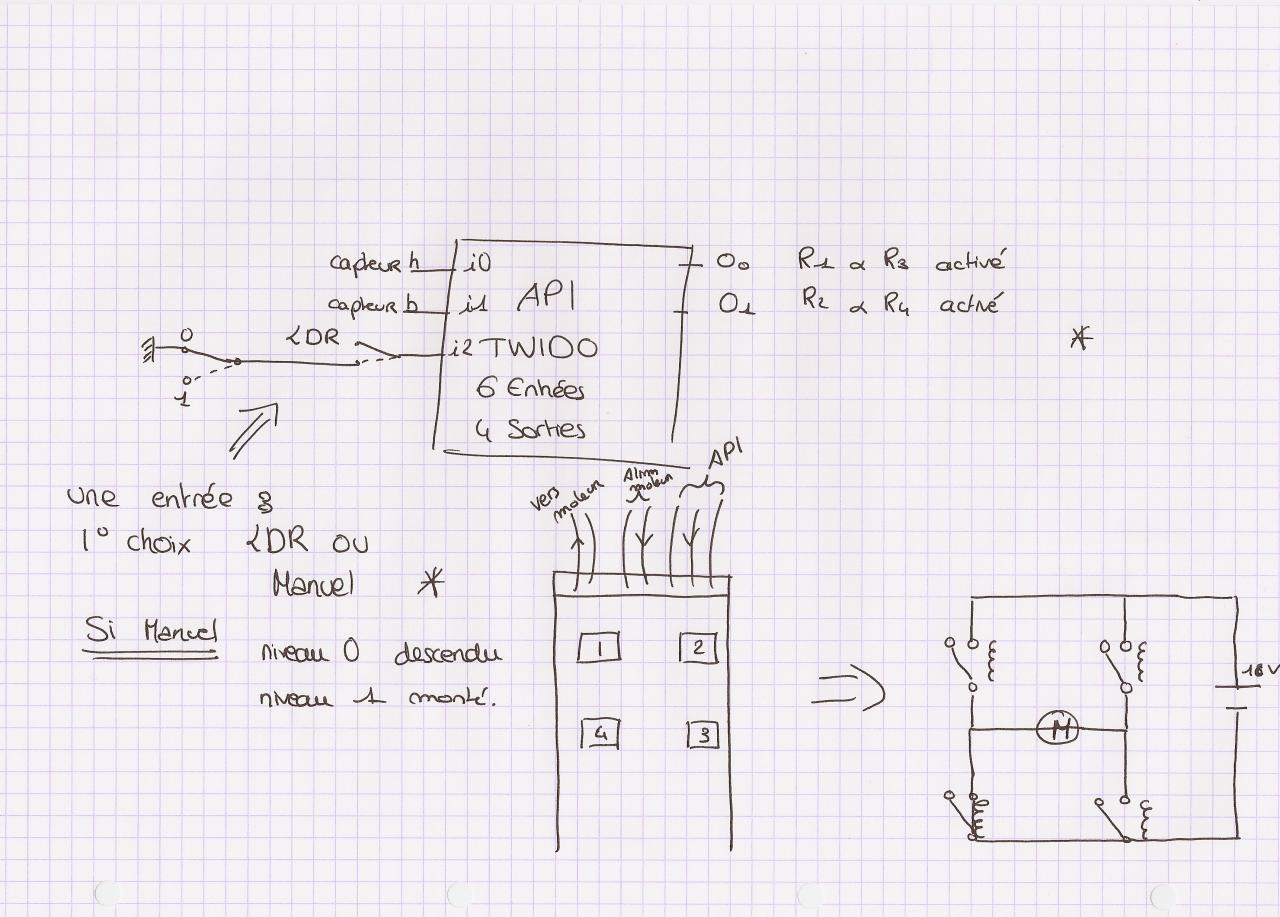 capteur h
i0
O0
R1 & R3 activé
capteur b
i1
API
O1
R2 & R4 activé
0
LDR
i2 TWIDO
*
1
6 Entrées
4 Sorties
une entrée :
1° choix LDR ou
Manuel *
Si Manuel
niveau 0 descendu
niveau 1 monté.
vers moteur
Alim moteur
API
1
2
4
3
M
18V